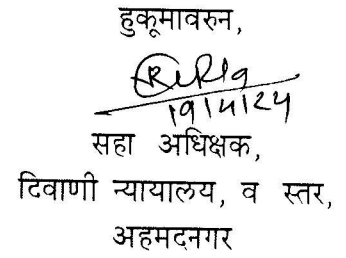 हुकूमावरुन,
19/4/24
सहा अधिक्षक,
दिवाणी न्यायालय, व स्तर,
अहमदनगर